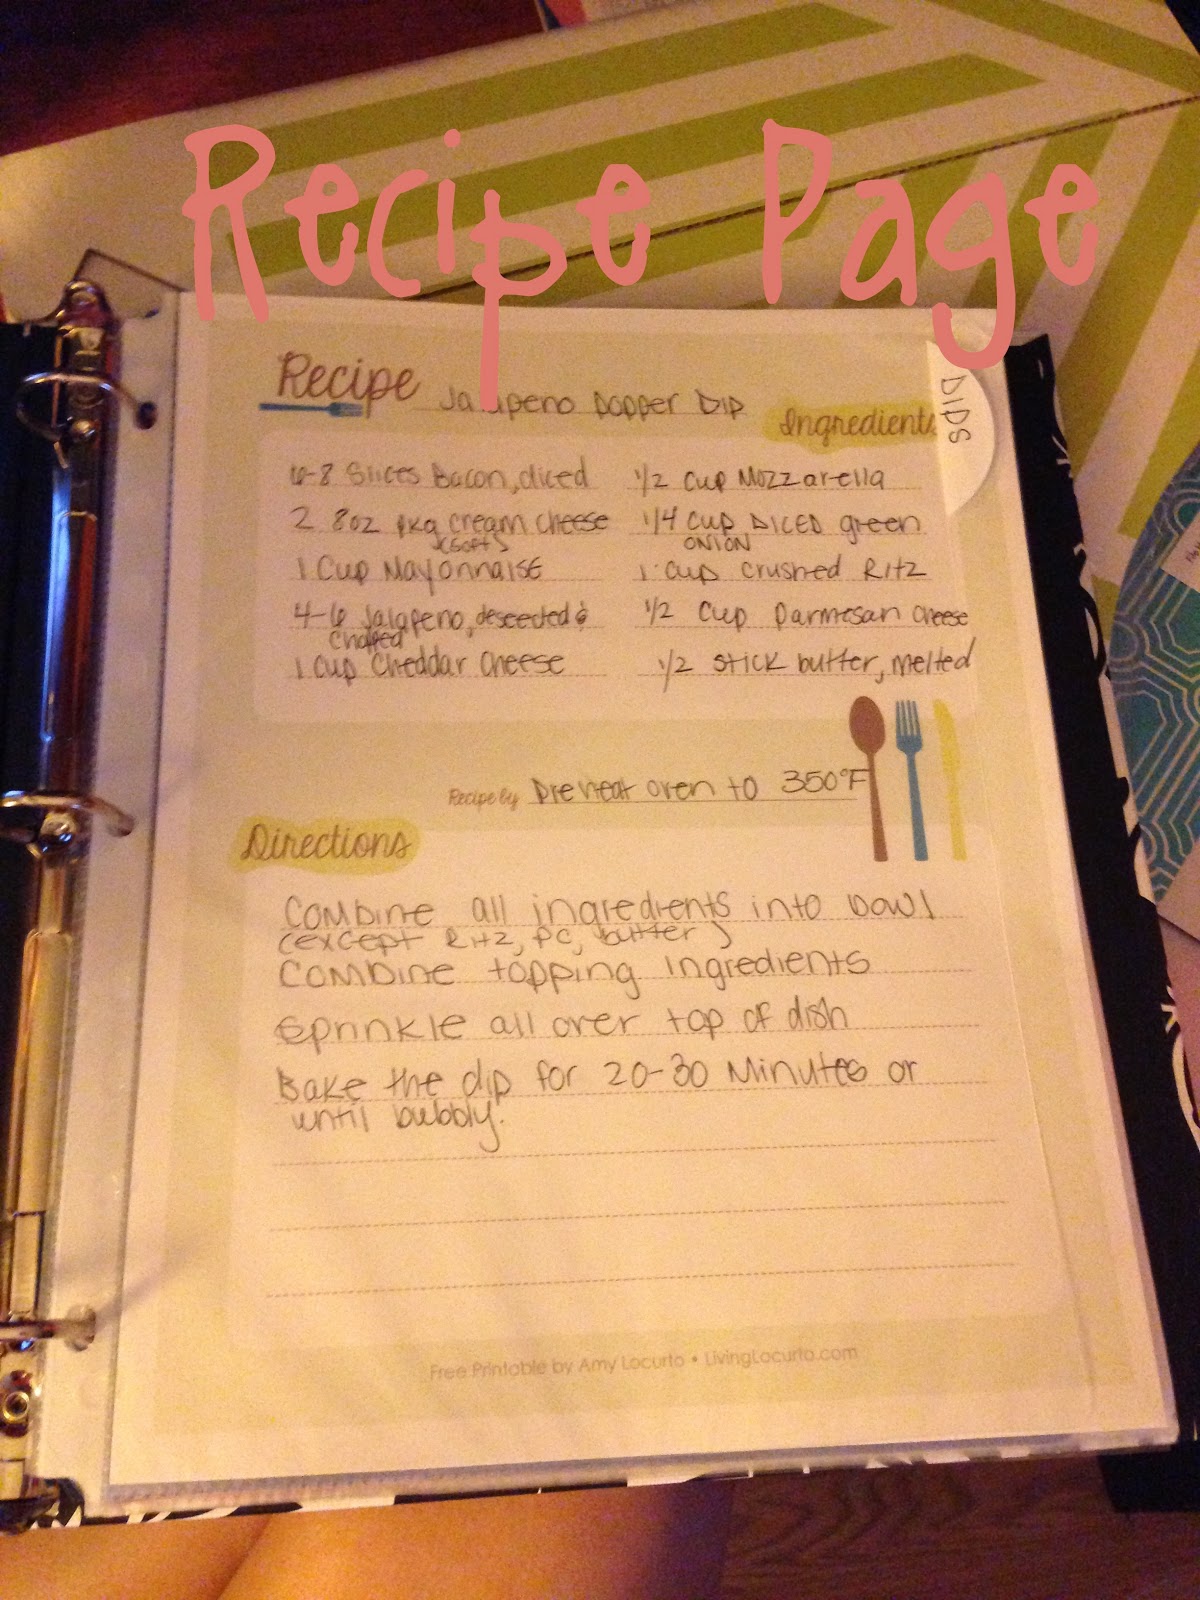 Recipe Page
Recipe Jalapeno Popper Dip
Ingredients
DIPS
6-8 Slices Bacon, diced
2 8oz pkg cream cheese
(soft)
1 Cup Mayonnaise
4-6 Jalapeno, deseeded &
chopped
1 cup Cheddar Cheese
1/2 cup Mozzarella
1/4 cup DICED green
ONION
1 cup crushed Ritz
1/2 cup Parmesan cheese
1/2 stick butter, melted
Recipe by Preheat oven to 350°F
Directions
Combine all ingredients into bowl
(except Ritz, PC, butter)
Combine topping ingredients
Sprinkle all over top of dish
Bake the dip for 20-30 Minutes or
until bubbly.
Free Printable by Amy Locurto • LivingLocurto.com